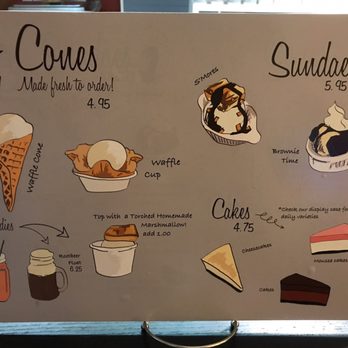 Cones
Made fresh to order!
4.95
Waffle Cone
Waffle
Cup
S'Mores
Sundae
5.95
Brownie
Time
dies
Rootbeer
Float
6.25
Top with a Torched Homemade
Marshmallow!
add 1.00
Cakes
4.75
*Check our display case fo
daily varieties
Cheesecakes
Cakes
Mousse cakes